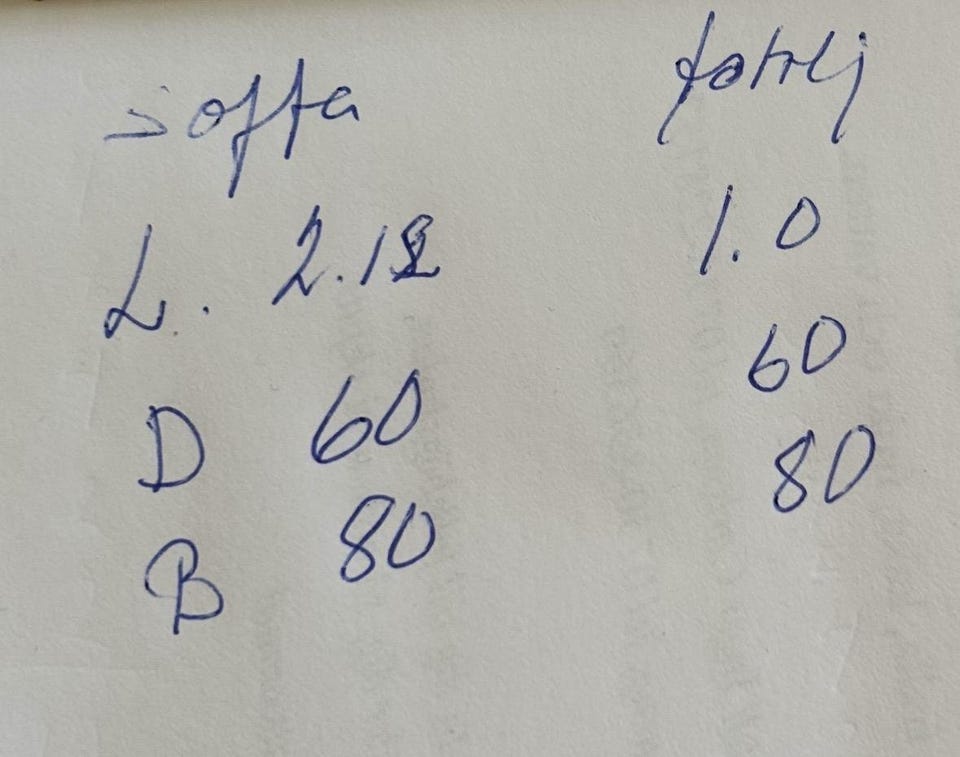 soffa fotolj
L. 2.12 1.0
D 60 60
B 80 80